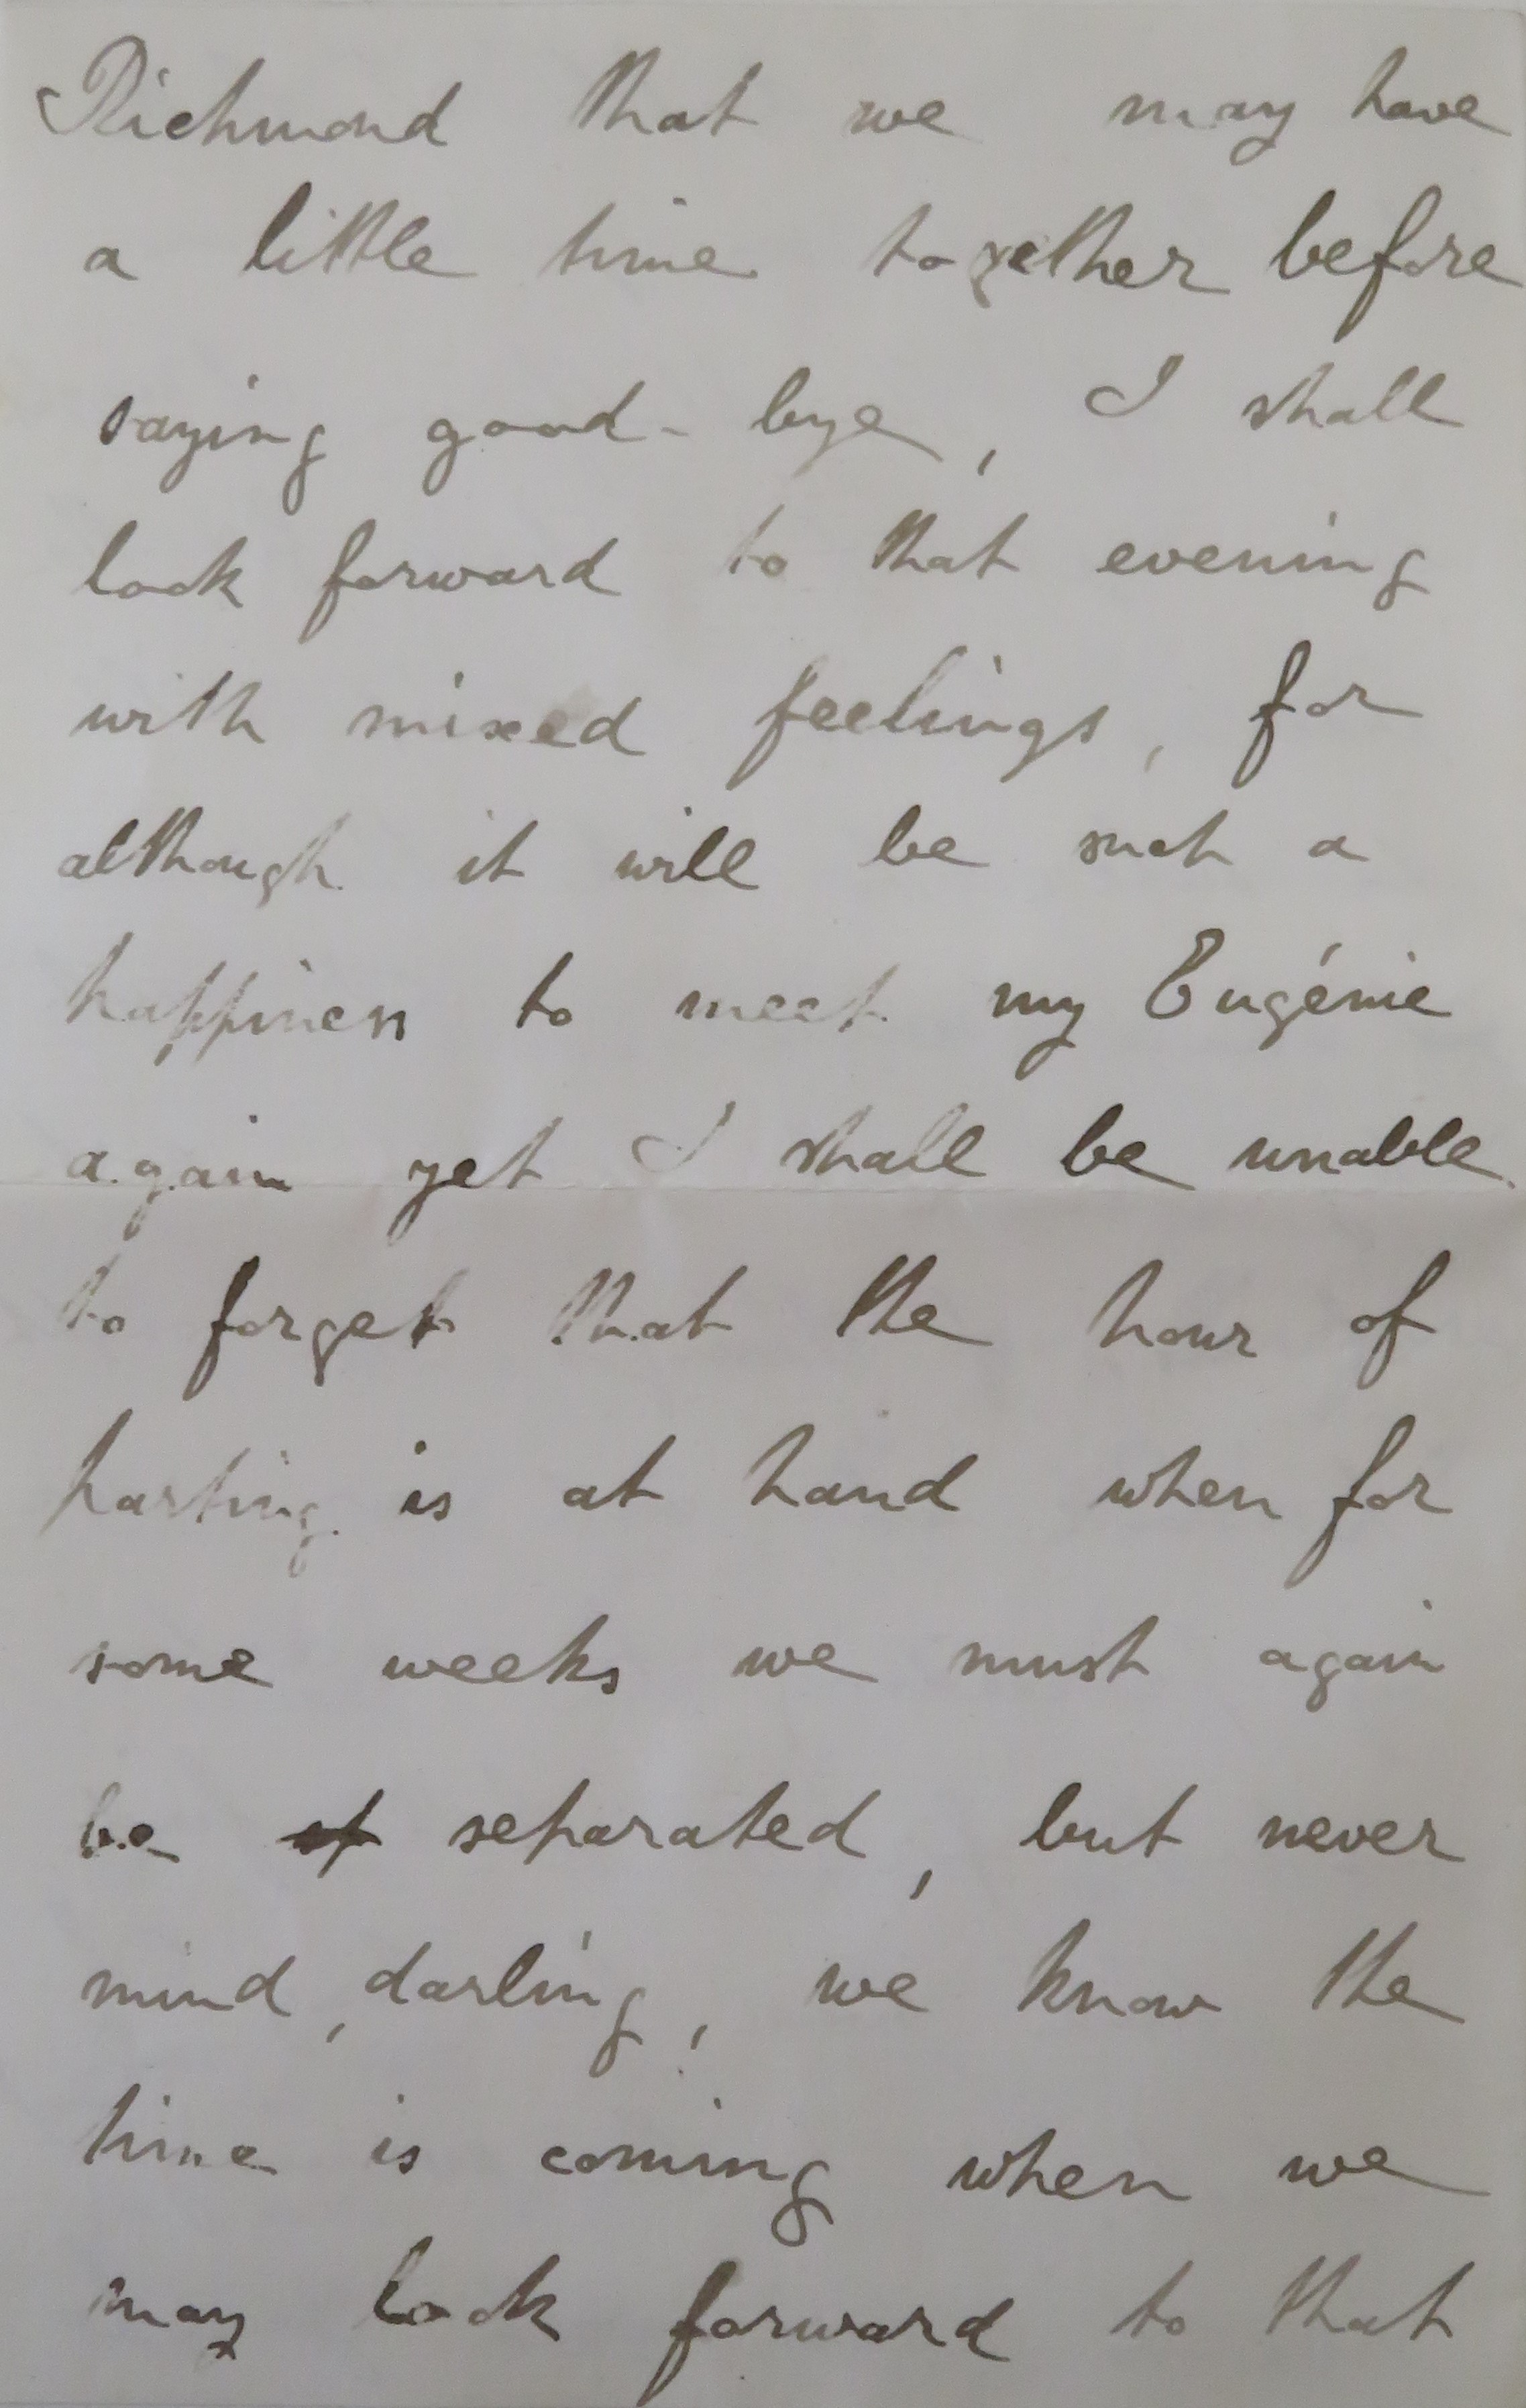 Richmond that we may have
a little time together before
saying good-bye, I shall
look forward to that evening
with mixed feelings, for
although it will be such a
happiness to meet my Eugénie
again yet I shall be unable
to forget that the hour of
parting is at hand when for
some weeks we must again
be separated, but never
mind, darling, we know the
time is coming when we
may look forward to that